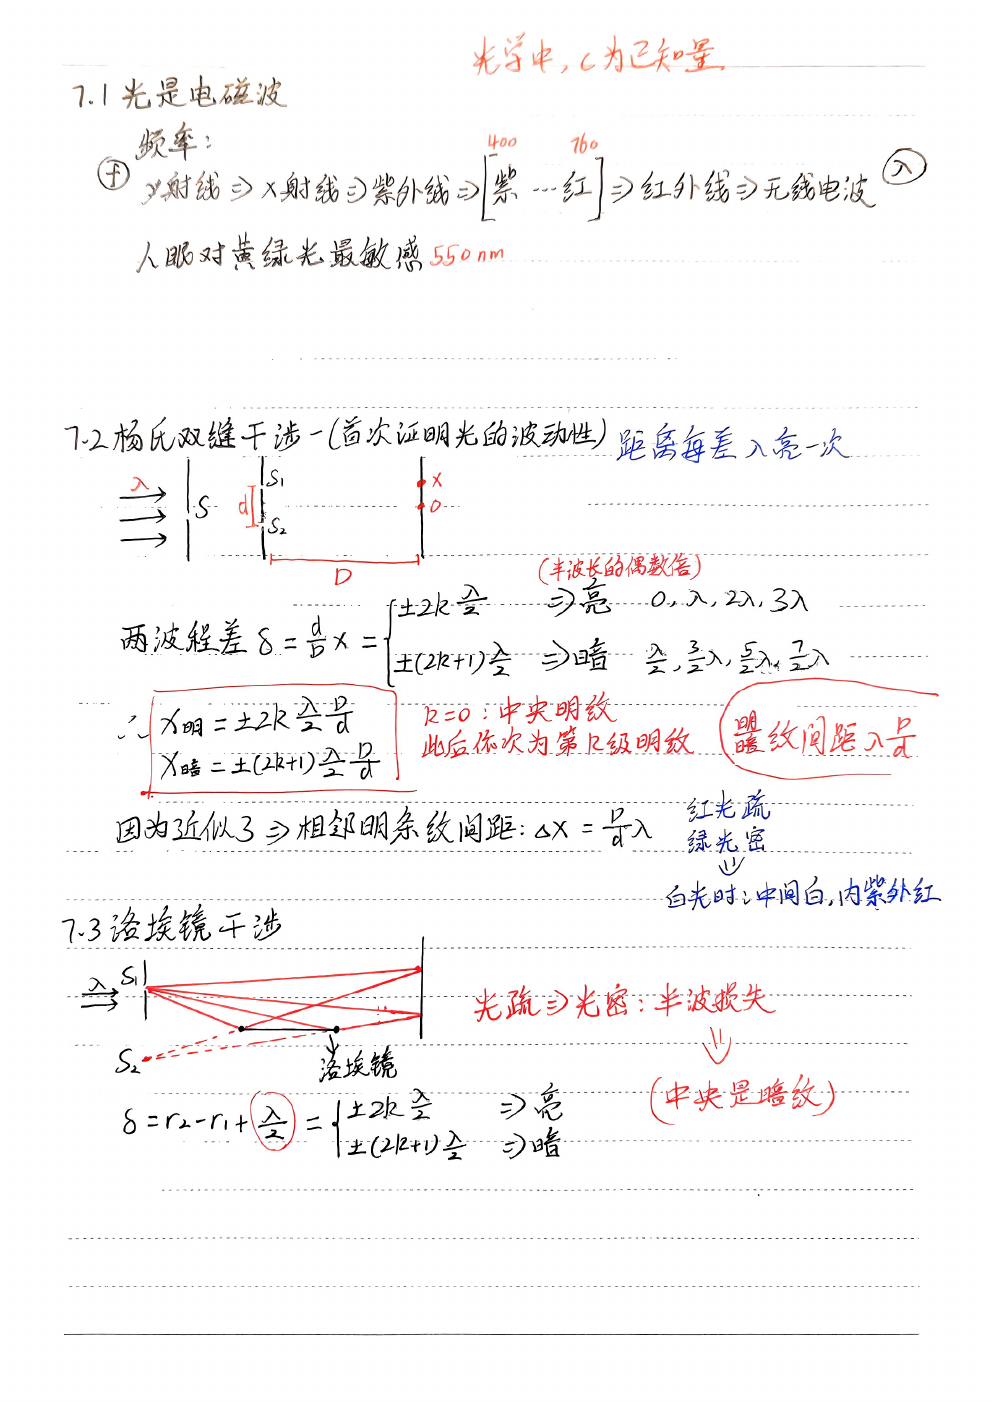 光学中，c为已知量
7.1 光是电磁波
频率：
400 760
f γ射线⇒X射线⇒紫外线⇒[紫…红]⇒红外线⇒无线电波 λ
人眼对黄绿光最敏感 550nm
7.2 杨氏双缝干涉-(首次证明光的波动性) 距离每差λ亮一次
λ S d S₁ S₂ D x 0
(半波长的偶数倍)
两波程差 δ = d/D x = { ±2k λ/2 ⇒亮 0, λ, 2λ, 3λ
±(2k+1) λ/2 ⇒暗 λ/2, 3/2λ, 5/2λ, 7/2λ
∴ x明 = ±2k λ/2 D/d k=0：中央明纹
x暗 = ±(2k+1) λ/2 D/d 此后依次为第k级明纹
明暗纹间距 λ D/d
因为近似了⇒相邻明条纹间距：Δx = D/d λ
红光疏
绿光密
⇓
白光时：中间白，内紫外红
7.3 洛埃镜干涉
λ S₁ S₂
洛埃镜
光疏⇒光密：半波损失
⇓
(中央是暗纹)
δ = r₂-r₁+ λ/2 = { ±2k λ/2 ⇒亮
±(2k+1) λ/2 ⇒暗